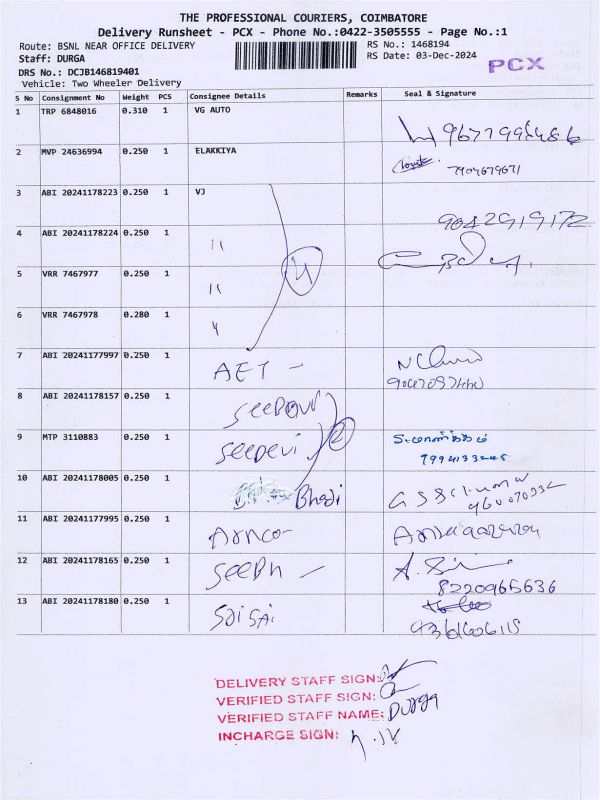 THE PROFESSIONAL COURIERS, COIMBATORE
Delivery Runsheet - PCX - Phone No.:0422-3505555 - Page No.:1
Route: BSNL NEAR OFFICE DELIVERY
Staff: DURGA
DRS No.: DCJB146819401
Vehicle: Two Wheeler Delivery
RS No.: 1468194
RS Date: 03-Dec-2024
PCX
S No Consignment No Weight PCS Consignee Details Remarks Seal & Signature
1 TRP 6848016 0.310 1 VG AUTO
2 MVP 24636994 0.250 1 ELAKKIYA 7904679671
3 ABI 20241178223 0.250 1 VJ 9042919172
4 ABI 20241178224 0.250 1 "
5 VRR 7467977 0.250 1 " 4
6 VRR 7467978 0.280 1 "
7 ABI 20241177997 0.250 1 AET -
8 ABI 20241178157 0.250 1
9 MTP 3110883 0.250 1 SEEDEVI 2
10 ABI 20241178005 0.250 1
11 ABI 20241177995 0.250 1
12 ABI 20241178165 0.250 1 8220965636
13 ABI 20241178180 0.250 1 Sai SAi
DELIVERY STAFF SIGN:
VERIFIED STAFF SIGN:
VERIFIED STAFF NAME: Durga
INCHARGE SIGN: